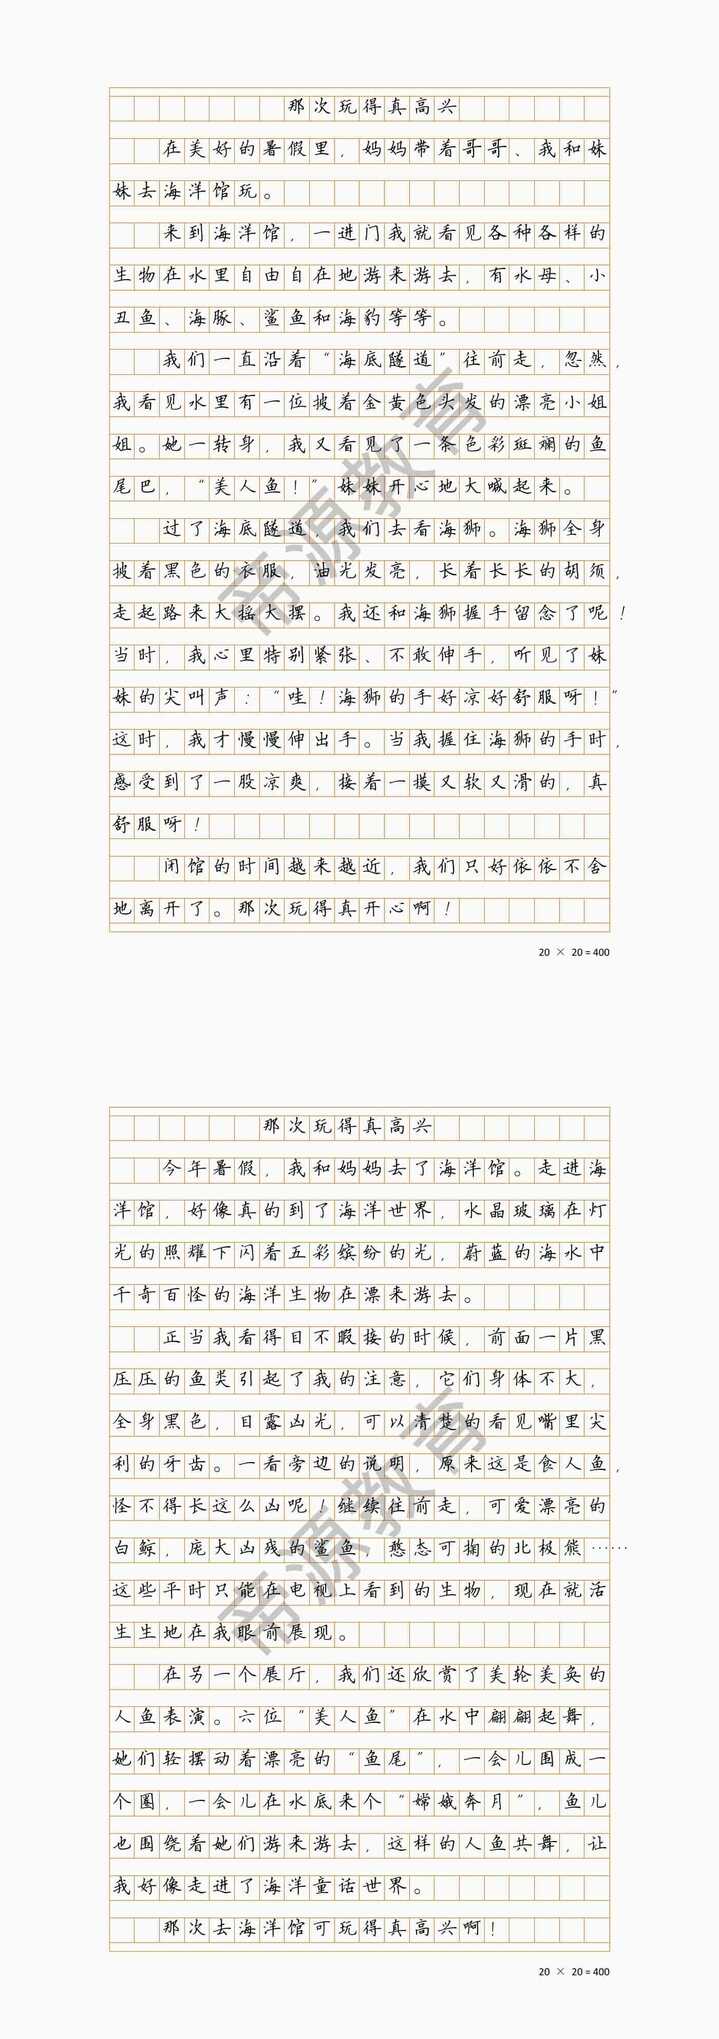 那次玩得真高兴
在美好的暑假里，妈妈带着哥哥、我和妹
妹去海洋馆玩。
来到海洋馆，一进门我就看见各种各样的
生物在水里自由自在地游来游去，有水母、小
丑鱼、海豚、鲨鱼和海豹等等。
我们一直沿着“海底隧道”往前走，忽然，
我看见水里有一位披着金黄色头发的漂亮小姐
姐。她一转身，我又看见了一条色彩斑斓的鱼
尾巴，“美人鱼！”妹妹开心地大喊起来。
过了海底隧道，我们去看海狮。海狮全身
披着黑色的衣服，油光发亮，长着长长的胡须，
走起路来大摇大摆。我还和海狮握手留念了呢！
当时，我心里特别紧张、不敢伸手，听见了妹
妹的尖叫声：“哇！海狮的手好凉好舒服呀！”
这时，我才慢慢伸出手。当我握住海狮的手时，
感受到了一股凉爽，接着一摸又软又滑的，真
舒服呀！
闭馆的时间越来越近，我们只好依依不舍
地离开了。那次玩得真开心啊！
20 × 20 = 400
那次玩得真高兴
今年暑假，我和妈妈去了海洋馆。走进海
洋馆，好像真的到了海洋世界，水晶玻璃在灯
光的照耀下闪着五彩缤纷的光，蔚蓝的海水中
千奇百怪的海洋生物在漂来游去。
正当我看得目不暇接的时候，前面一片黑
压压的鱼类引起了我的注意，它们身体不大，
全身黑色，目露凶光，可以清楚的看见嘴里尖
利的牙齿。一看旁边的说明，原来这是食人鱼，
怪不得长这么凶呢！继续往前走，可爱漂亮的
白鲸，庞大凶残的鲨鱼，憨态可掬的北极熊……
这些平时只能在电视上看到的生物，现在就活
生生地在我眼前展现。
在另一个展厅，我们还欣赏了美轮美奂的
人鱼表演。六位“美人鱼”在水中翩翩起舞，
她们轻摆动着漂亮的“鱼尾”，一会儿围成一
个圈，一会儿在水底来个“嫦娥奔月”，鱼儿
也围绕着她们游来游去，这样的人鱼共舞，让
我好像走进了海洋童话世界。
那次去海洋馆可玩得真高兴啊！
20 × 20 = 400
帝源教育
帝源教育